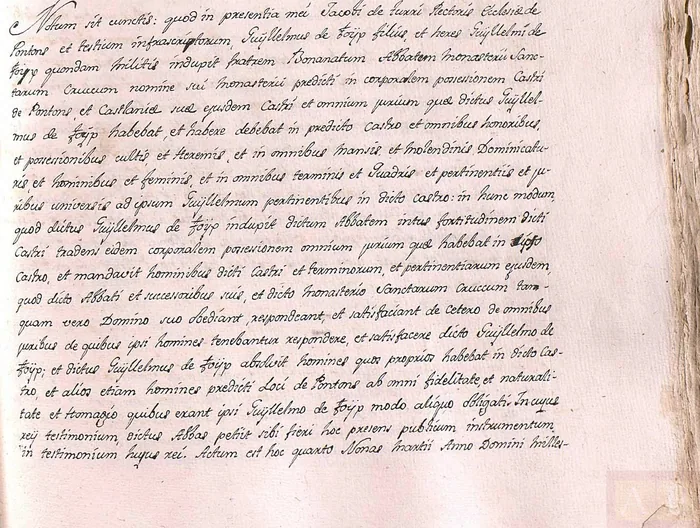 Notum sit cunctis: quod in presentia mei Jacobi de Turri Rectoris Eclesie de
Pontons et testium infrascriptorum, Guillelmus de Foyp filius et heres Guillelmi de
Foyp quondam militis indupit fratrem Bonanatum Abbatem Monasterii Sanc-
tarum Crucum nomine sui Monasterii predicti in corporalem posesionem Castri
de Pontons et Castlaniæ suæ ejusdem Castri et omnium jurium quæ dictus Guillel-
mus de Foyp habebat, et habere debebat in predicto Castro et omnibus honoribus,
et posesionibus cultis et heremis, et in omnibus mansis et molendinis Dominicatu-
ris et hominibus et feminis, et in omnibus terminis et Quadris et pertinentiis et ju-
ribus universis ad ipsum Guillelmum pertinentibus in dicto castro: in hunc modum,
quod dictus Guillelmus de Foyp indupit dictum Abbatem intus fortitudinem dicti
Castri tradens eidem corporalem posesionem omnium jurium quæ habebat in dicto
Castro, et mandavit hominibus dicti Castri et terminorum, et pertinentiarum ejusdem,
quod dicto Abbati et successoribus suis, et dicto monasterio Sanctarum Crucum tam-
quam vero Domino suo obediant, respondeant, et satisfaciant de cetero de omnibus
juribus de quibus ipsi homines tenebantur respondere, et satisfacere dicto Guillelmo de
Foyp; et dictus Guillelmus de Foyp absolvit homines quos proprios habebat in dicto Cas-
tro, et alios etiam homines predicti loci de Pontons ab omni fidelitate, et naturali-
tate et homagio quibus erant ipsi Guillelmo de Foyp modo aliquo obligati. In cujus
rey testimonium, dictus Abbas petiit sibi fieri hoc presens publicum instrumentum,
in testimonium hujus rei. Actum est hoc quarto Nonas Martii Anno Domini Milles-